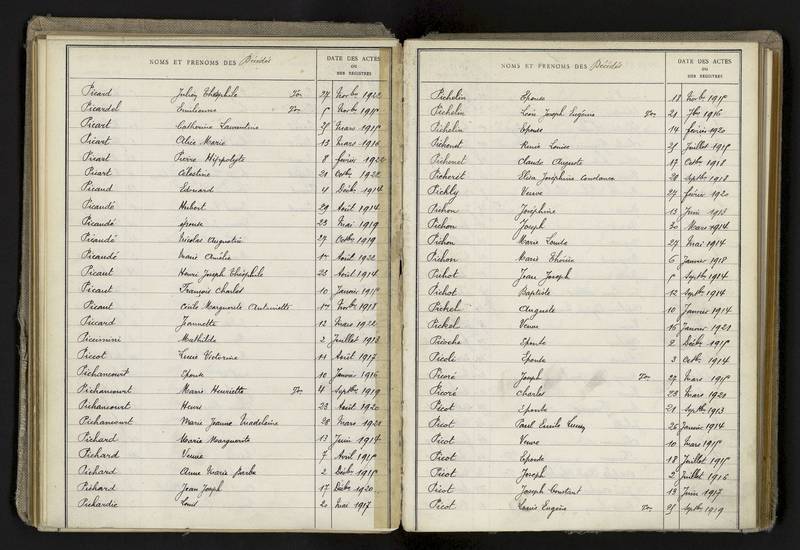 NOMS ET PRENOMS DES Décédés
DATE DES ACTES
OU
DES REGISTRES
Picard Julien Théophile 27 Novbre 1922
Picardel Emilienne 5 Novbre 1915
Picart Catherine Laurentine 25 Mars 1915
Picart Alice Marie 13 Mars 1916
Picart Pierre Hippolyte 8 février 1922
Picart Célestine 21 Octbre 1922
Picaud Edouard 4 Décbre 1914
Picaudé Hubert 29 Août 1914
Picaudé épouse 23 Mai 1919
Picaudé Nicolas Augustin 27 Octbre 1919
Picaudé Marie Amélie 17 Août 1922
Picaut Henri Joseph Théophile 23 Août 1914
Picaut François Charles 10 Janvier 1915
Picaut Cécile Marguerite Antoinette 17 Novbre 1918
Piccard Jeannette 12 Mars 1922
Mathilde 2 Juillet 1918
Piccot Lucie Victorine 11 Août 1917
Pichancourt Epouse 10 Janvier 1916
Pichancourt Marie Henriette 4 Septbre 1919
Pichancourt Henri 23 Août 1920
Pichancourt Marie Jeanne Madeleine 28 Mars 1921
Pichard Marie Marguerite 13 Juin 1914
Pichard Veuve 7 Avril 1915
Pichard Anne Marie Barbe 2 Décbre 1915
Pichard Jean Joseph 17 Décbre 1920
Pichardie Louis 20 Mai 1917
NOMS ET PRENOMS DES Décédés
DATE DES ACTES
OU
DES REGISTRES
Pichelin Epouse 18 Novbre 1915
Pichelin Léon Joseph Eugène 21 7bre 1916
Pichelin Epouse 14 février 1920
Pichenet René Louise 25 Juillet 1915
Pichenet Claude Auguste 17 Octbre 1918
Picheret Elisa Joséphine Constance 28 Septbre 1918
Pichly Veuve 27 février 1920
Pichon Joséphine 13 Juin 1913
Pichon Joseph 30 Mars 1914
Pichon Marie Louise 27 Mai 1914
Pichon Marie Thérèse 6 Janvier 1918
Pichot Jean Joseph 5 Septbre 1914
Pichot Baptiste 12 Septbre 1914
Pickel Auguste 10 Janvier 1914
Pickel Veuve 16 Janvier 1921
Picoche Epouse 2 Décbre 1915
Picole Epouse 3 Octbre 1914
Picoré Joseph 27 Mars 1915
Picoré Charles 23 Mars 1920
Picot Epouse 21 Septbre 1913
Picot Paul Emile Lucien 26 Janvier 1914
Picot Veuve 10 Mars 1915
Picot Epouse 18 Juillet 1915
Picot Joseph 2 Juillet 1916
Picot Joseph Constant 13 Juin 1917
Picot Louis Eugène 25 Septbre 1919